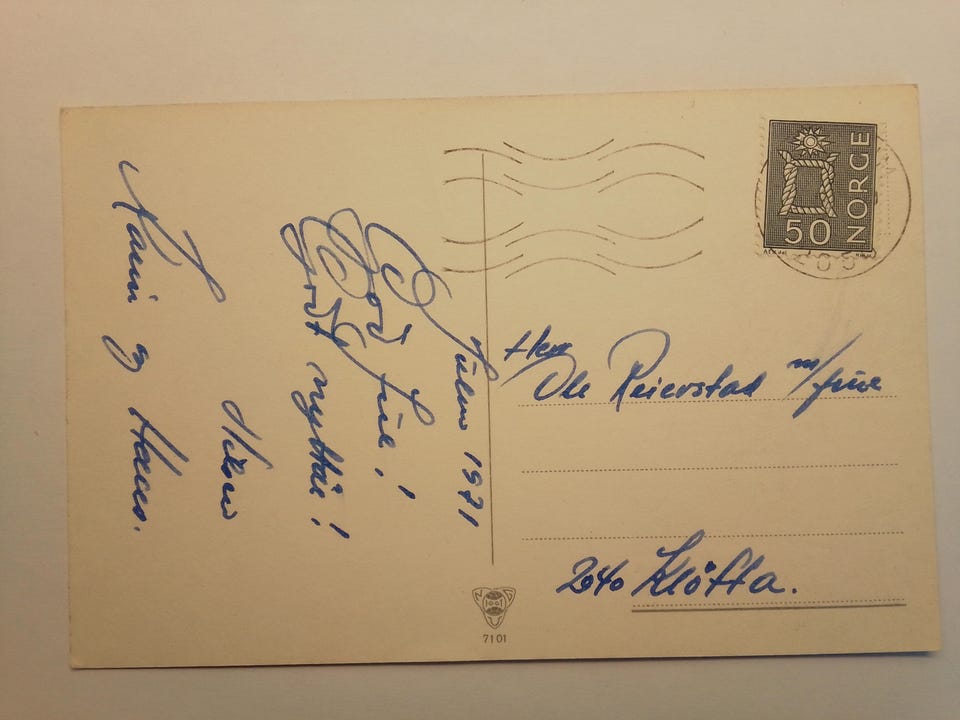 Julen 1971
God Jul!
Godt nyttår!
Hilsen
Karin og Hans.
Herr
Ole Reierstad m/frue
2040 Kløfta.
NORGE
50
7101